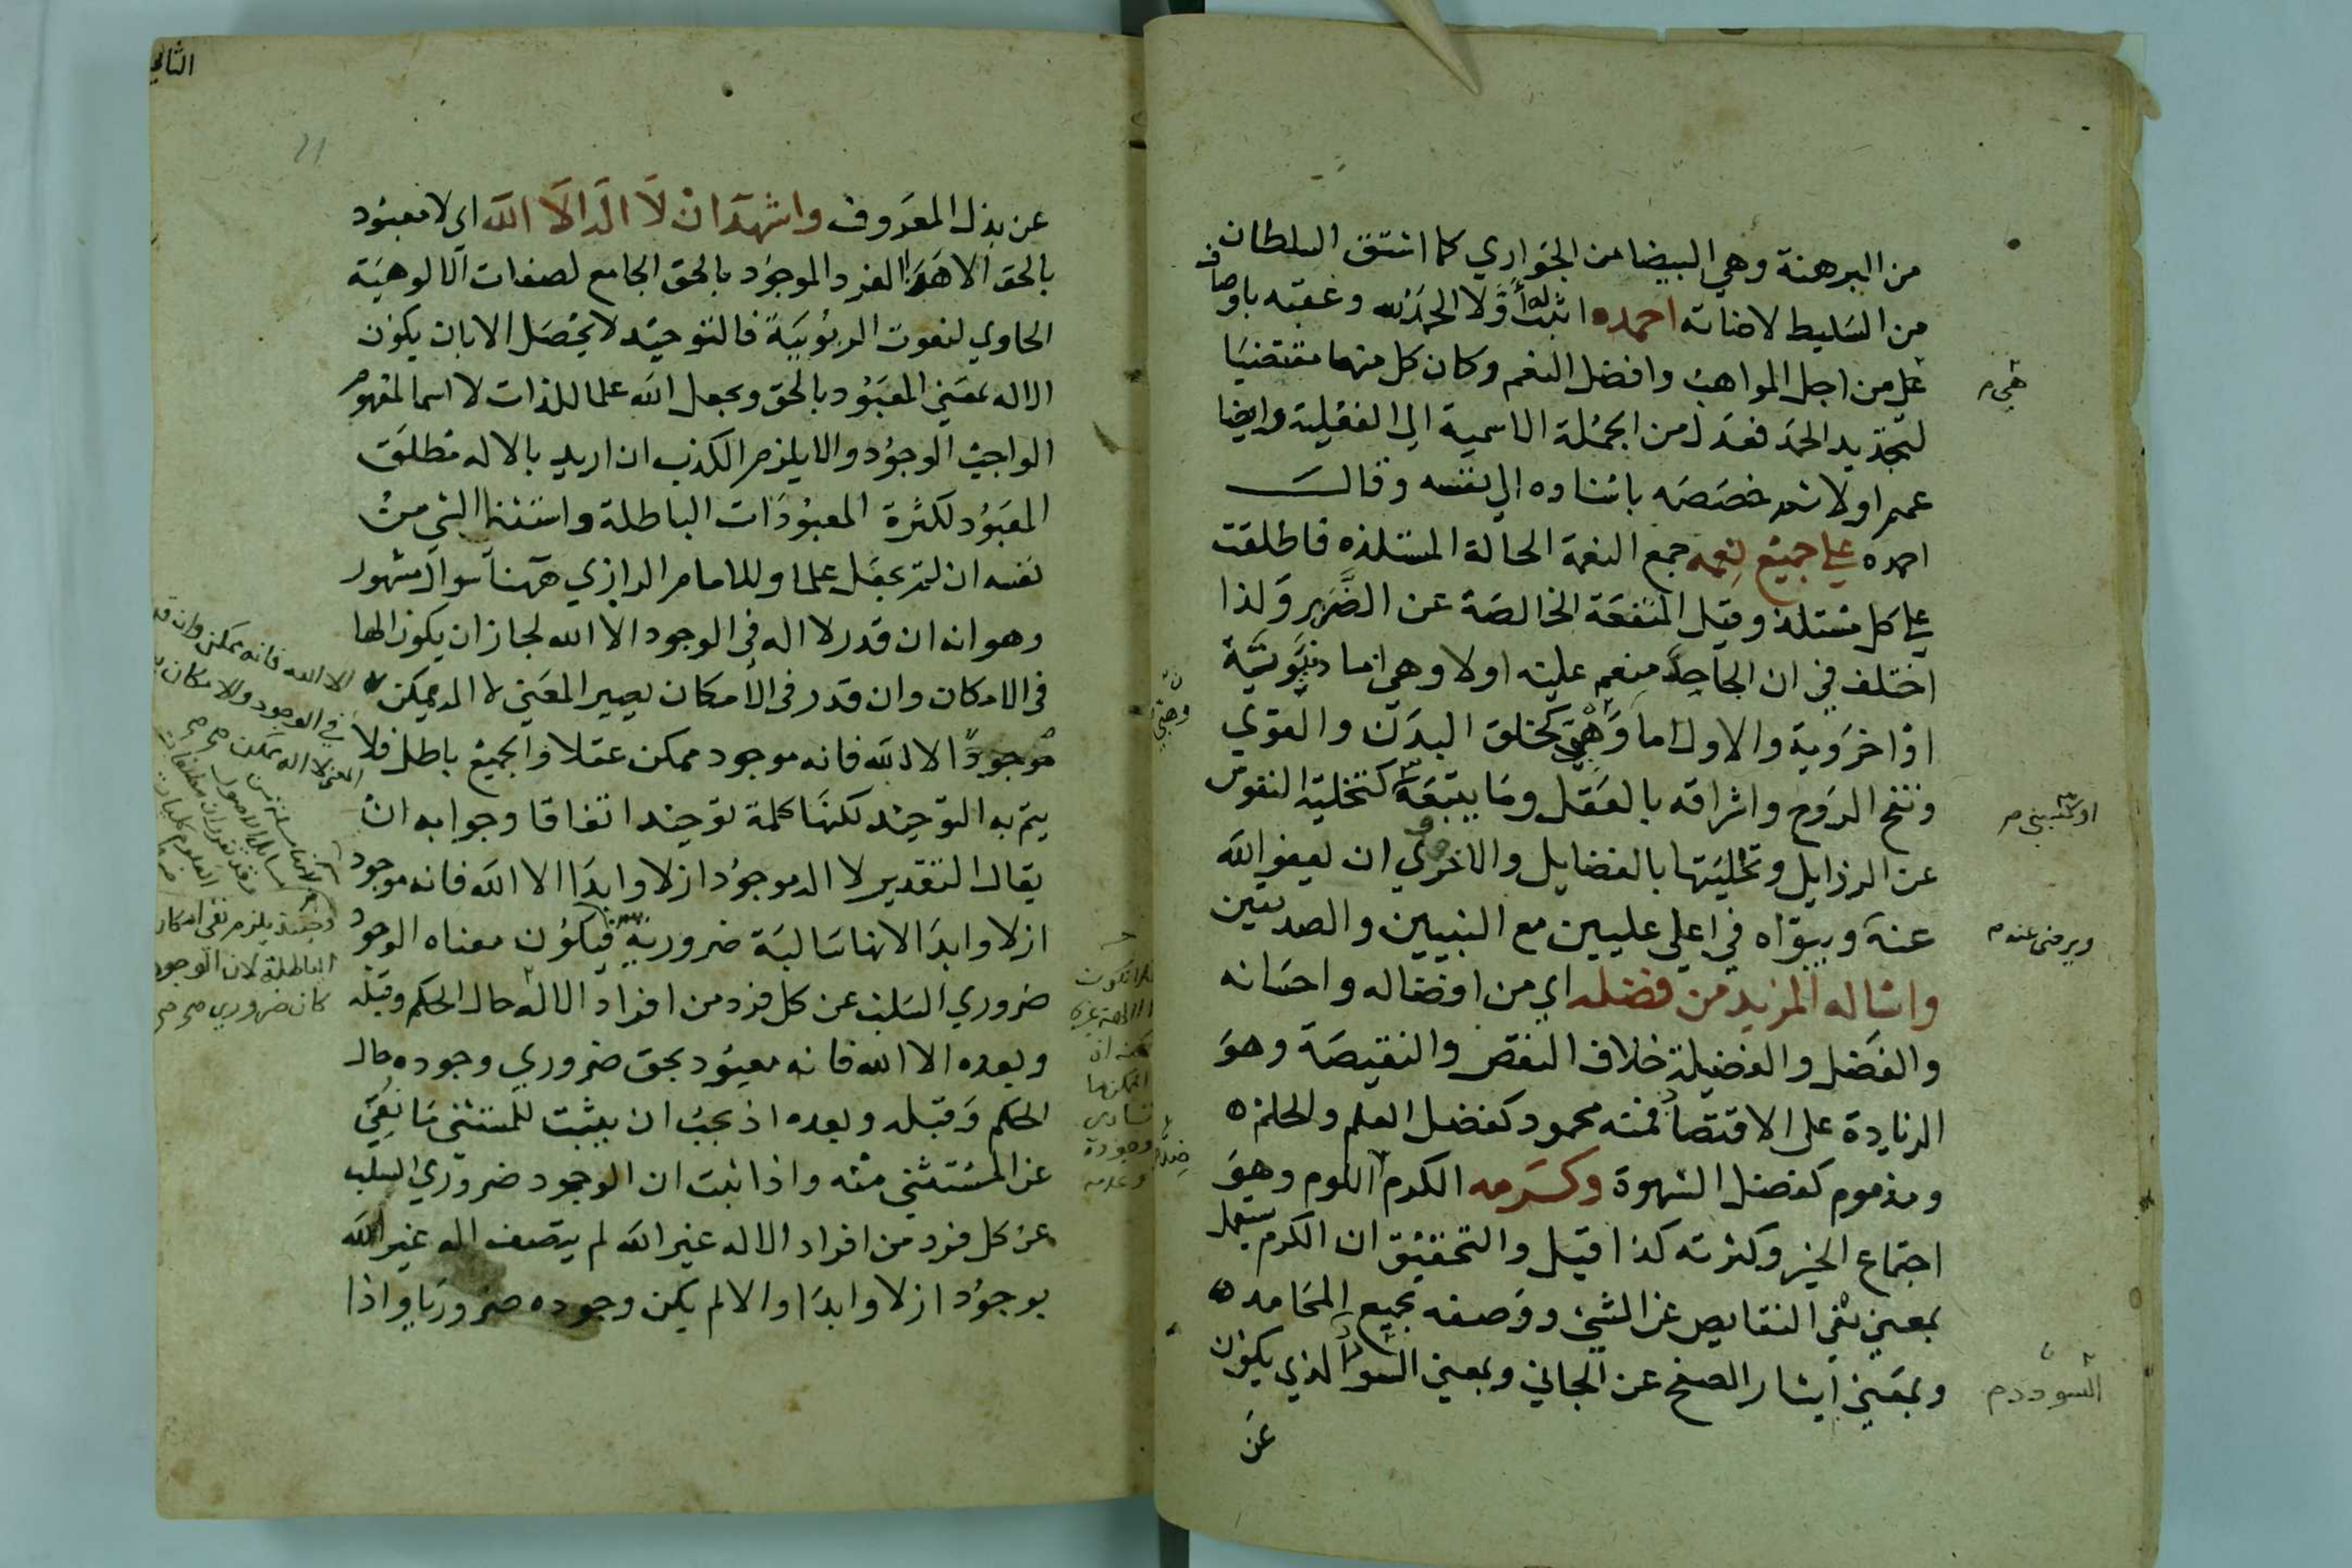 من البرهنة وهي البيضا من الجواري كما اشتق السلطان
من السليط لاضاته احمده اثبت له اولا الحمد لله وعقبه باوصاف
هي من اجل المواهب وافضل النعم وكان كل منهما مقتضيا
لتجديد الحمد فعدل من الجملة الاسمية الي الفعلية وايضا
عمم اولا ثم خصصه باسناده الي نفسه وقال
احمده علي جميع نعمه جمع النعمة الحالة المستلذه فاطلقت
علي كل مستلذ وقيل المنفعة الخالصة عن الضرر ولذا
اختلف في ان الجاحد منعم عليه اولا وهي اما دنيوية
او اخروية والاول اما وهبي كخلق البدن والقوي
ونفخ الروح واشراقه بالعقل وما يتبعه كتخلية النفوس
عن الرزايل وتحليتها بالفضايل والاخروي ان يعفو الله
عنه ويبواه في اعلي عليين مع النبيين والصديقين
واساله المزيد من فضله اي من افضاله واحسانه
والفضل والفضيلة خلاف النقص والنقيصة وهو
الزيادة علي الاقتصاد فمنه محمود كفضل العلم والحلم
ومذموم كفضل الشهوة وكرمه الكرم اللوم وهو
اجتماع الخير وكثرته كذا قيل والتحقيق ان الكرم يستعمل
بمعني نفي النقايص عن الشي ووصفه بجميع المحامد
وبمعني ايثار الصفح عن الجاني وبمعني السو الذي يكون
عن
هي م
وهبي
او كسبي م
ويرضي عنه م
ضد
السودد م
الثاني
عن بذل المعروف واشهد ان لا اله الا الله اي لا معبود
بالحق الا هو الفرد الموجود بالحق الجامع لصفات الالوهية
الحاوي لنعوت الربوبية فالتوحيد لا يحصل الا بان يكون
الاله بمعني المعبود بالحق وبجعل الله علما للذات لا اسما لمفهوم
الواجب الوجود والا يلزم الكذب ان اريد بالاله مطلق
المعبود لكثرة المعبودات الباطلة واستثنا الشي من
نفسه ان لم يجعل علما وللامام الرازي ههنا سوال مشهور
وهو انه ان قدر لا اله في الوجود الا الله لجاز ان يكون الها
في الامكان وان قدر في الامكان يصير المعني لا اله يمكن
موجودا الا الله فانه موجود ممكن عقلا والجميع باطل فلا
يتم به التوحيد لكنها كلمة توحيد اتفاقا وجوابه ان
يقال التقدير لا اله موجود ازلا وابدا الا الله فانه موجود
ازلا وابدا لانها سالبة ضرورية فيكون معناه الوجود
ضروري السلب عن كل فرد من افراد الاله حال الحكم وقبله
وبعده الا الله فانه معبود بحق ضروري وجوده حال
الحكم وقبله وبعده اذ يجب ان يثبت للمستثني ما نفي
عن المستثني منه واذا ثبت ان الوجود ضروري السلب
عن كل فرد من افراد الاله غير الله لم يتصف اله غير الله
بوجود ازلا وابدا والا لم يكن وجوده ضروريا واذا
الا الله فانه يمكن وان قد
في الوجود والامكان
المعني لا اله يمكن صح صح
وحينئذ يلزم نفي امكان
الباطلة لان الوجود
كان ضروري صح صح